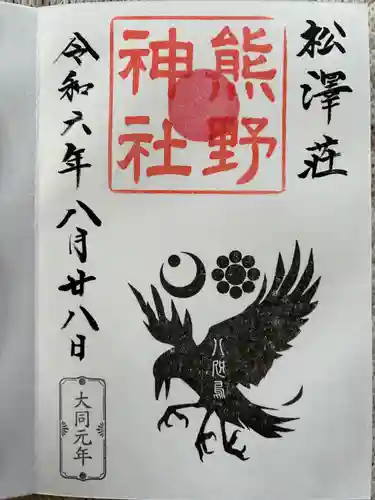 松澤荘
熊野
神社
令和六年八月廿八日
八咫烏
大同元年